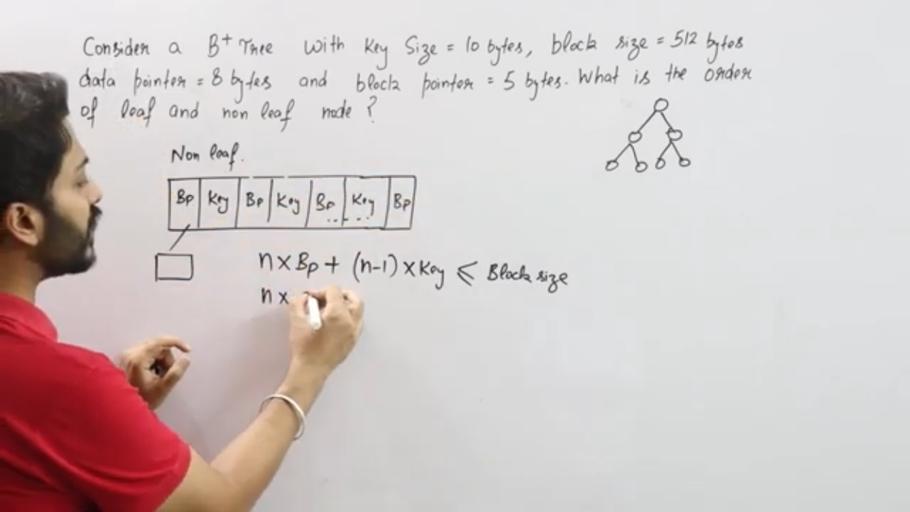 Consider a B+ Tree with Key Size = 10 bytes, block size = 512 bytes
data pointer = 8 bytes and block pointer = 5 bytes. What is the order
of leaf and non leaf node ?
Non leaf.
Bp Key Bp Key Bp Key Bp
.. ...
n × Bp + (n-1) × Key ≤ Block size
n ×